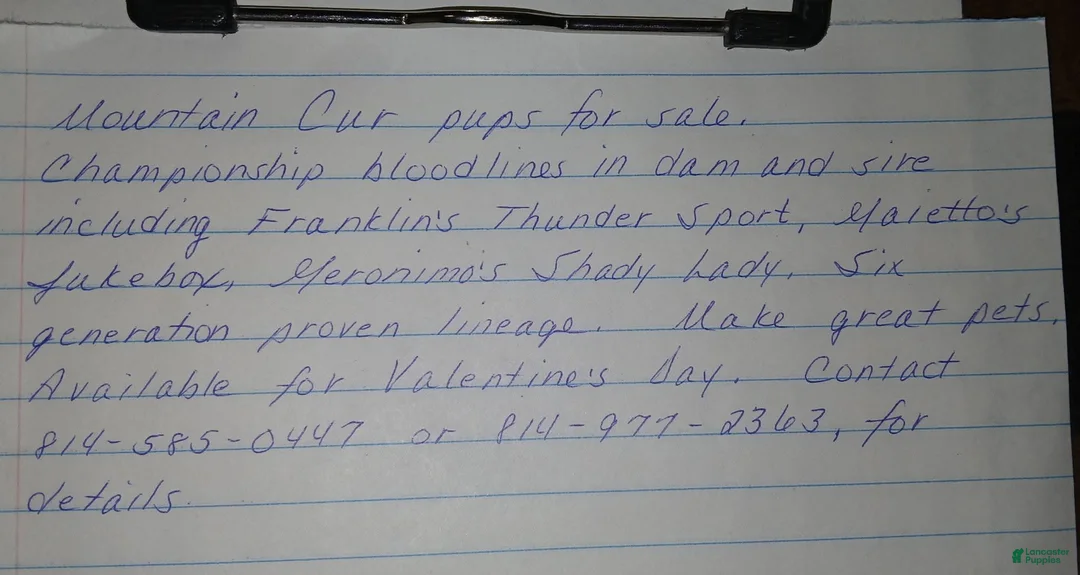 Mountain Cur pups for sale.
Championship bloodlines in dam and sire
including Franklin's Thunder Sport, Maietto's
Jukebox, Geronimo's Shady Lady. Six
generation proven lineage. Make great pets.
Available for Valentine's Day. Contact
814-585-0447 or 814-977-2363, for
details.
Lancaster
Puppies